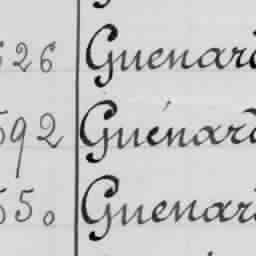 626 Guenard
592 Guénard
550 Guenard